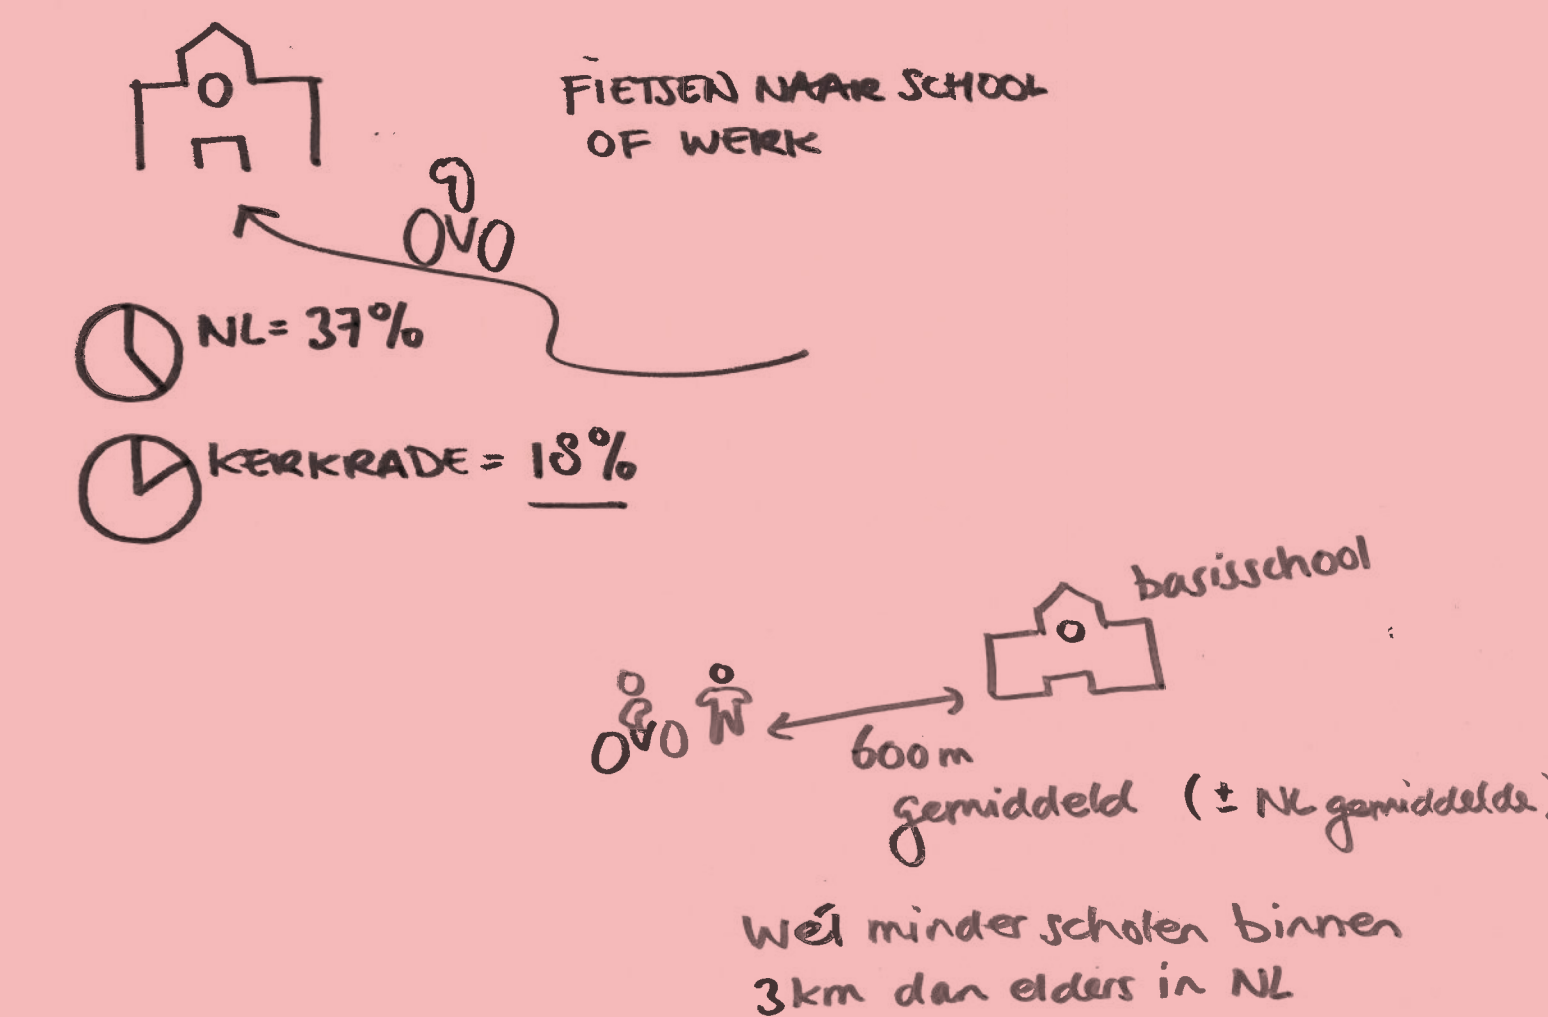 FIETSEN NAAR SCHOOL
OF WERK
NL = 37%
KERKRADE = 18%
basisschool
600 m
gemiddeld (± NL gemiddelde)
Wél minder scholen binnen
3 km dan elders in NL